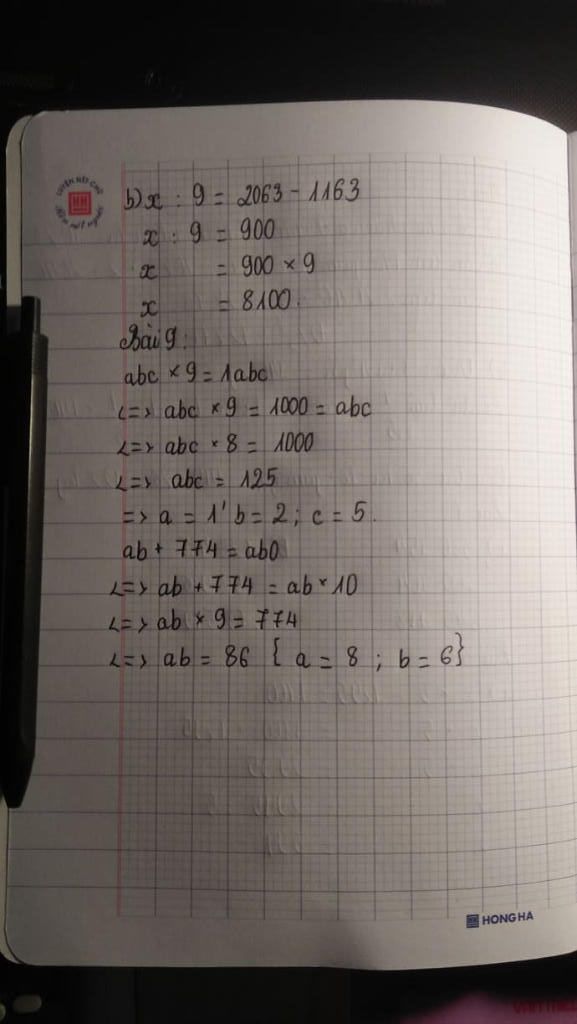 LUYỆN NÉT CHỮ
HH
b) x : 9 = 2063 - 1163
x : 9 = 900
x = 900 × 9
x = 8100.
Bài 9:
abc × 9 = 1abc
<=> abc × 9 = 1000 = abc
<=> abc × 8 = 1000
<=> abc = 125
=> a = 1' b = 2 ; c = 5.
ab + 774 = ab0
<=> ab + 774 = ab × 10
<=> ab × 9 = 774
<=> ab = 86 { a = 8 ; b = 6}
HONG HA